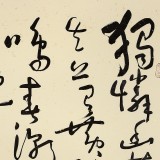 獨憐幽
生上有黃
鳴春潮